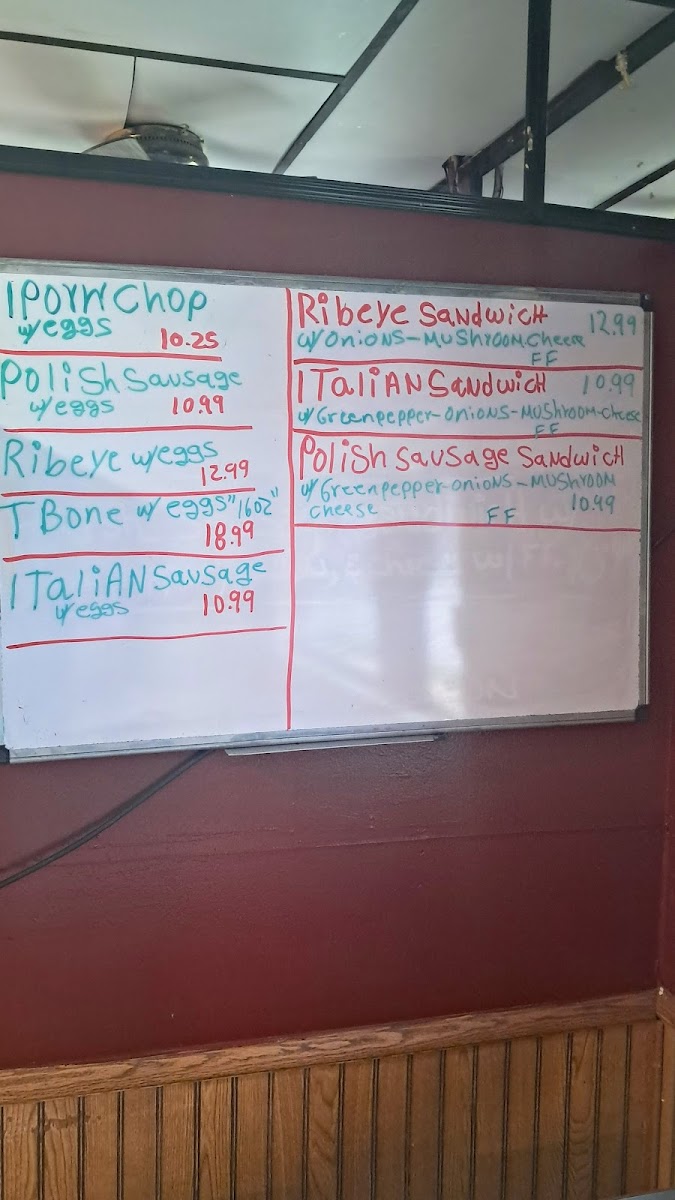 1 PORK CHOP
w/eggs 10.25
Polish Sausage
w/eggs 10.99
Ribeye w/eggs
12.99
T Bone w/ eggs "16oz"
18.99
ITALIAN Sausage
w/eggs 10.99
Ribeye SANDWICH 12.99
w/ONIONS-MUSHROOM-Cheese
FF
ITALIAN SANDWICH 10.99
w/Greenpepper-ONIONS-MUSHROOM-Cheese
FF
POLISH SAUSAGE SANDWICH
w/Greenpepper-ONIONS-MUSHROOM
cheese FF 10.99